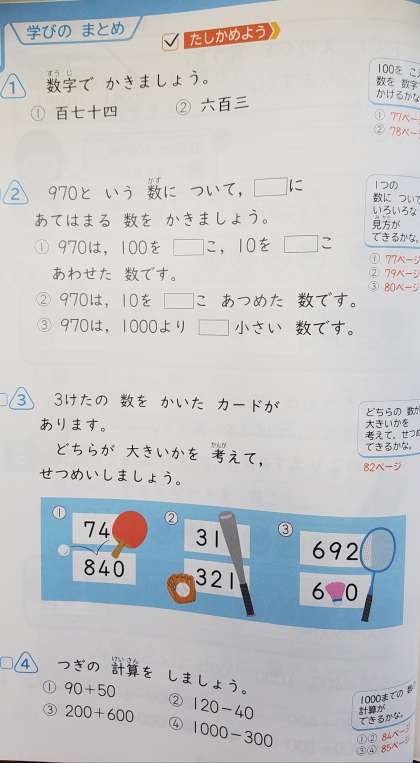 学びの まとめ
たしかめよう
1 数字で かきましょう。
すう じ
① 百七十四 ② 六百三
100を こ
数を 数字
かけるかな
① 77ページ
② 78ペー
2 970と いう 数に ついて，□に
かず
あてはまる 数を かきましょう。
① 970は，100を □こ，10を □こ
あわせた 数です。
② 970は，10を □こ あつめた 数です。
③ 970は，1000より □小さい 数です。
1つの
数に つい
いろいろな
見方が
できるかな。
① 77ページ
② 79ページ
③ 80ページ
3 3けたの 数を かいた カードが
あります。
どちらが 大きいかを 考えて，
かんが
せつめいしましょう。
どちらの 数が
大きいかを
考えて，せつめ
できるかな。
82ページ
① 74
840
② 31
321
③ 692
6 0
4 つぎの 計算を しましょう。
けい さん
① 90+50 ② 120-40
③ 200+600 ④ 1000-300
1000までの 数
計算が
できるかな。
①② 84ペー
③④ 85ペー